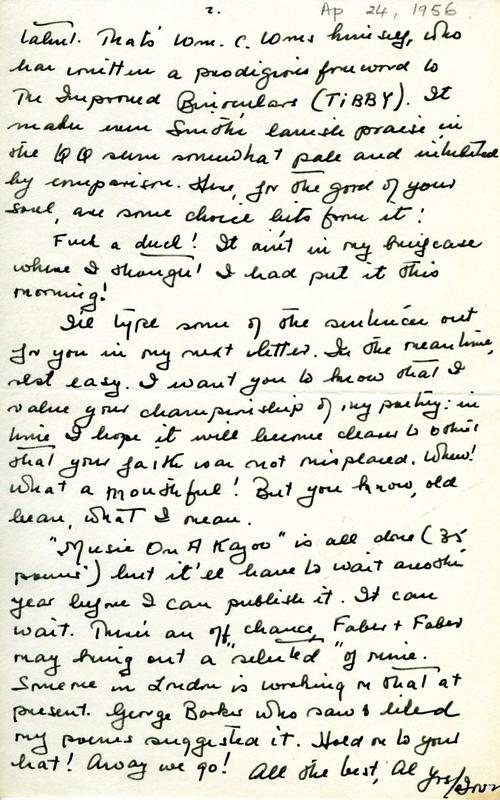 2.
Ap 24, 1956
talent. That's Wm. C. Wms himself, who
has written a prodigious foreword to
The Improved Binoculars (TIBBY). It
makes even Smith's lavish praise in
the QQ seem somewhat pale and inhibited
by comparison. Here, for the good of your
soul, are some choice bits from it!
Fuck a duck! It ain't in my briefcase
where I thought I had put it this
morning!
I'll type some of the sentences out
for you in my next letter. In the meantime,
rest easy. I want you to know that I
value your championship of my poetry: in
time I hope it will become clear to others
that your faith was not misplaced. Whew!
What a mouthful! But you know, old
bean, what I mean.
"Music On A Kazoo" is all done (35
poems) but it'll have to wait another
year before I can publish it. It can
wait. There's an off chance, Faber + Faber
may bring out a "selected" of mine.
Someone in London is working on that at
present. George Barker who saw & liked
my poems suggested it. Hold on to your
hat! Away we go! All the best, Al
Yrs/Irv